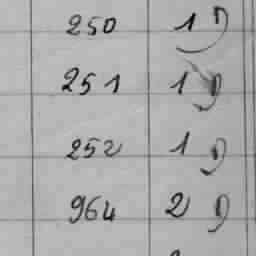 250 1
251 1
252 1
964 2